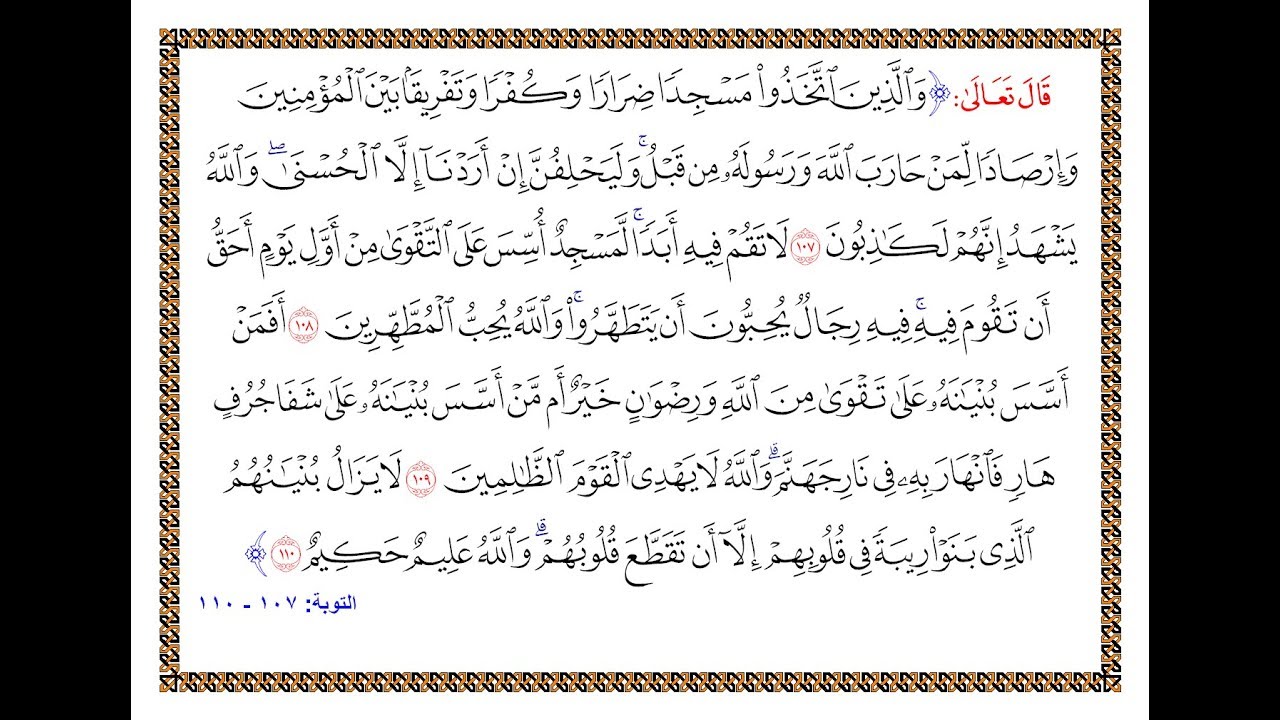 قَالَ تَعَالَىٰ: ﴿وَٱلَّذِينَ ٱتَّخَذُواْ مَسۡجِدٗا ضِرَارٗا وَكُفۡرٗا وَتَفۡرِيقَۢا بَيۡنَ ٱلۡمُؤۡمِنِينَ
وَإِرۡصَادٗا لِّمَنۡ حَارَبَ ٱللَّهَ وَرَسُولَهُۥ مِن قَبۡلُۚ وَلَيَحۡلِفُنَّ إِنۡ أَرَدۡنَآ إِلَّا ٱلۡحُسۡنَىٰۖ وَٱللَّهُ
يَشۡهَدُ إِنَّهُمۡ لَكَٰذِبُونَ ١٠٧ لَا تَقُمۡ فِيهِ أَبَدٗاۚ لَّمَسۡجِدٌ أُسِّسَ عَلَى ٱلتَّقۡوَىٰ مِنۡ أَوَّلِ يَوۡمٍ أَحَقُّ
أَن تَقُومَ فِيهِۚ فِيهِ رِجَالٞ يُحِبُّونَ أَن يَتَطَهَّرُواْۚ وَٱللَّهُ يُحِبُّ ٱلۡمُطَّهِّرِينَ ١٠٨ أَفَمَنۡ
أَسَّسَ بُنۡيَٰنَهُۥ عَلَىٰ تَقۡوَىٰ مِنَ ٱللَّهِ وَرِضۡوَٰنٍ خَيۡرٌ أَم مَّنۡ أَسَّسَ بُنۡيَٰنَهُۥ عَلَىٰ شَفَا جُرُفٍ
هَارٖ فَٱنۡهَارَ بِهِۦ فِي نَارِ جَهَنَّمَۗ وَٱللَّهُ لَا يَهۡدِي ٱلۡقَوۡمَ ٱلظَّٰلِمِينَ ١٠٩ لَا يَزَالُ بُنۡيَٰنُهُمُ
ٱلَّذِي بَنَوۡاْ رِيبَةٗ فِي قُلُوبِهِمۡ إِلَّآ أَن تَقَطَّعَ قُلُوبُهُمۡۗ وَٱللَّهُ عَلِيمٌ حَكِيمٌ ١١٠﴾
التوبة: ١٠٧ - ١١٠